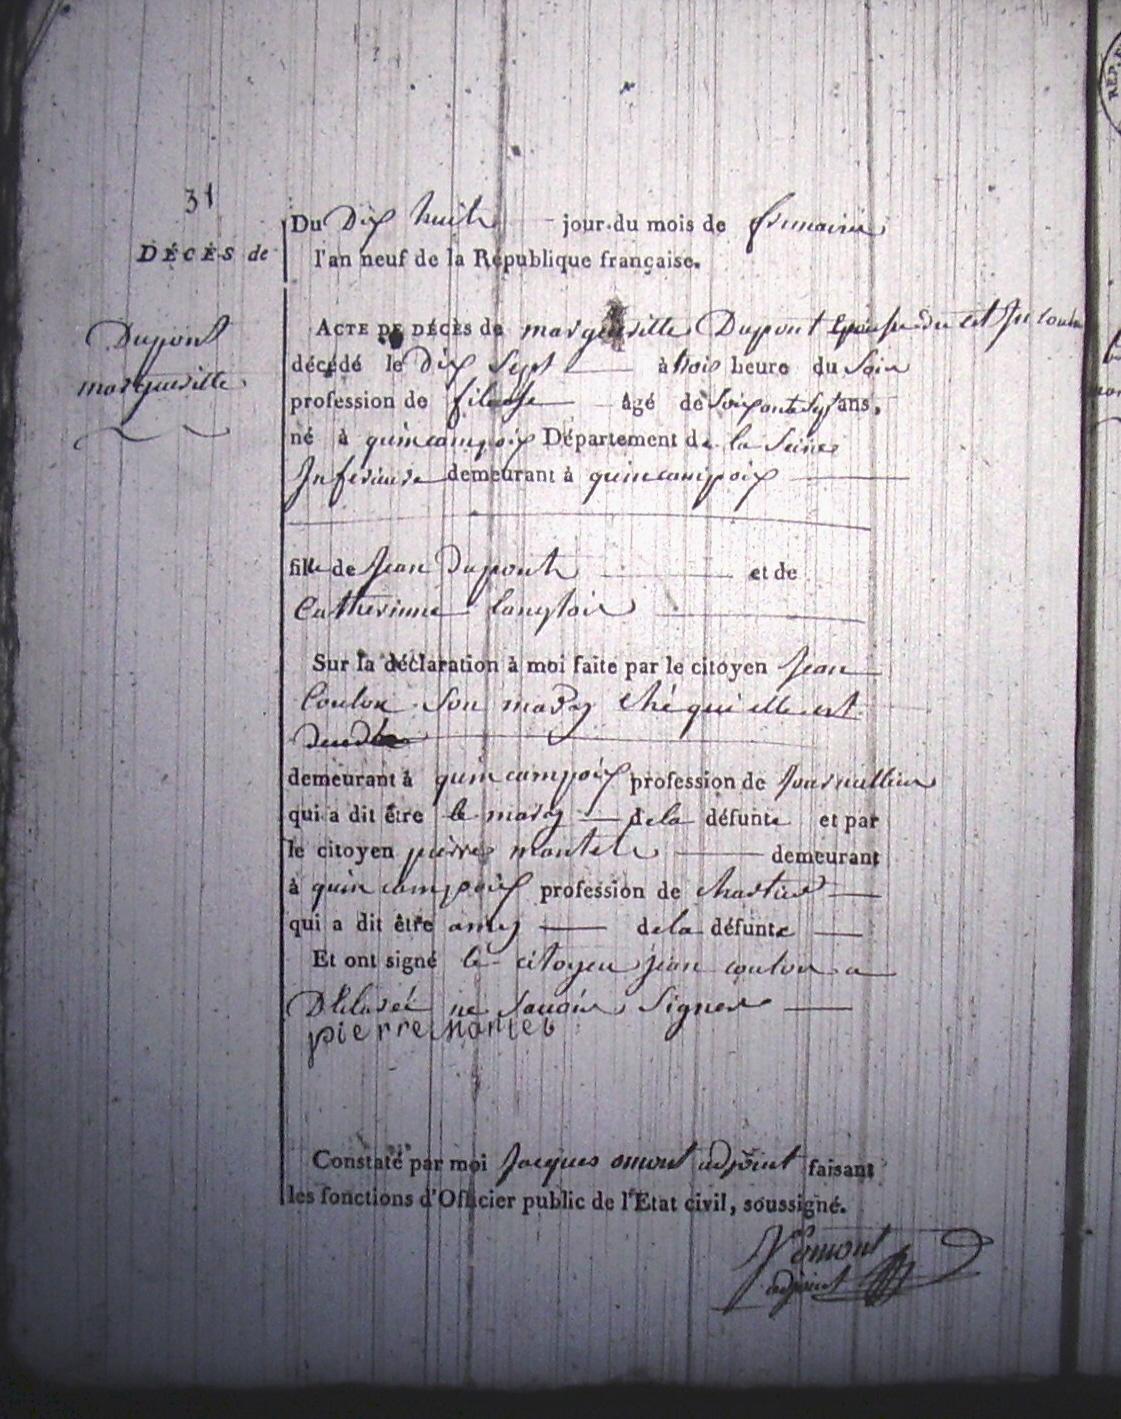 31
Du Dix huit jour du mois de frimaire
DÉCÈS de
l'an neuf de la République française.
Dupont
margueritte
ACTE DE DÉCÈS de margueritte Dupont Epouse du cit Jn coulon
décédé le Dix Sept à trois heure du Soir
profession de fileuse âgé de Soixante Sept ans,
né à quincampoix Département de la Seine
Inferieure demeurant à quincampoix
fille de Jean Dupont et de
Catherinne Langlois
Sur la déclaration à moi faite par le citoyen Jean
Coulon Son mary ché qui elle est
demeurant à quincampoix profession de Journallier
qui a dit être le mary de la défunte et par
le citoyen pierre demeurant
à quincampoix profession de
qui a dit être amy de la défunte
Et ont signé le citoyen jean coulon a
Déclaré ne Savoir Signer
pierre
Constaté par moi Jacques omont adjoint faisant
les fonctions d'Officier public de l'Etat civil, soussigné.
J omont
adjoint
REP.